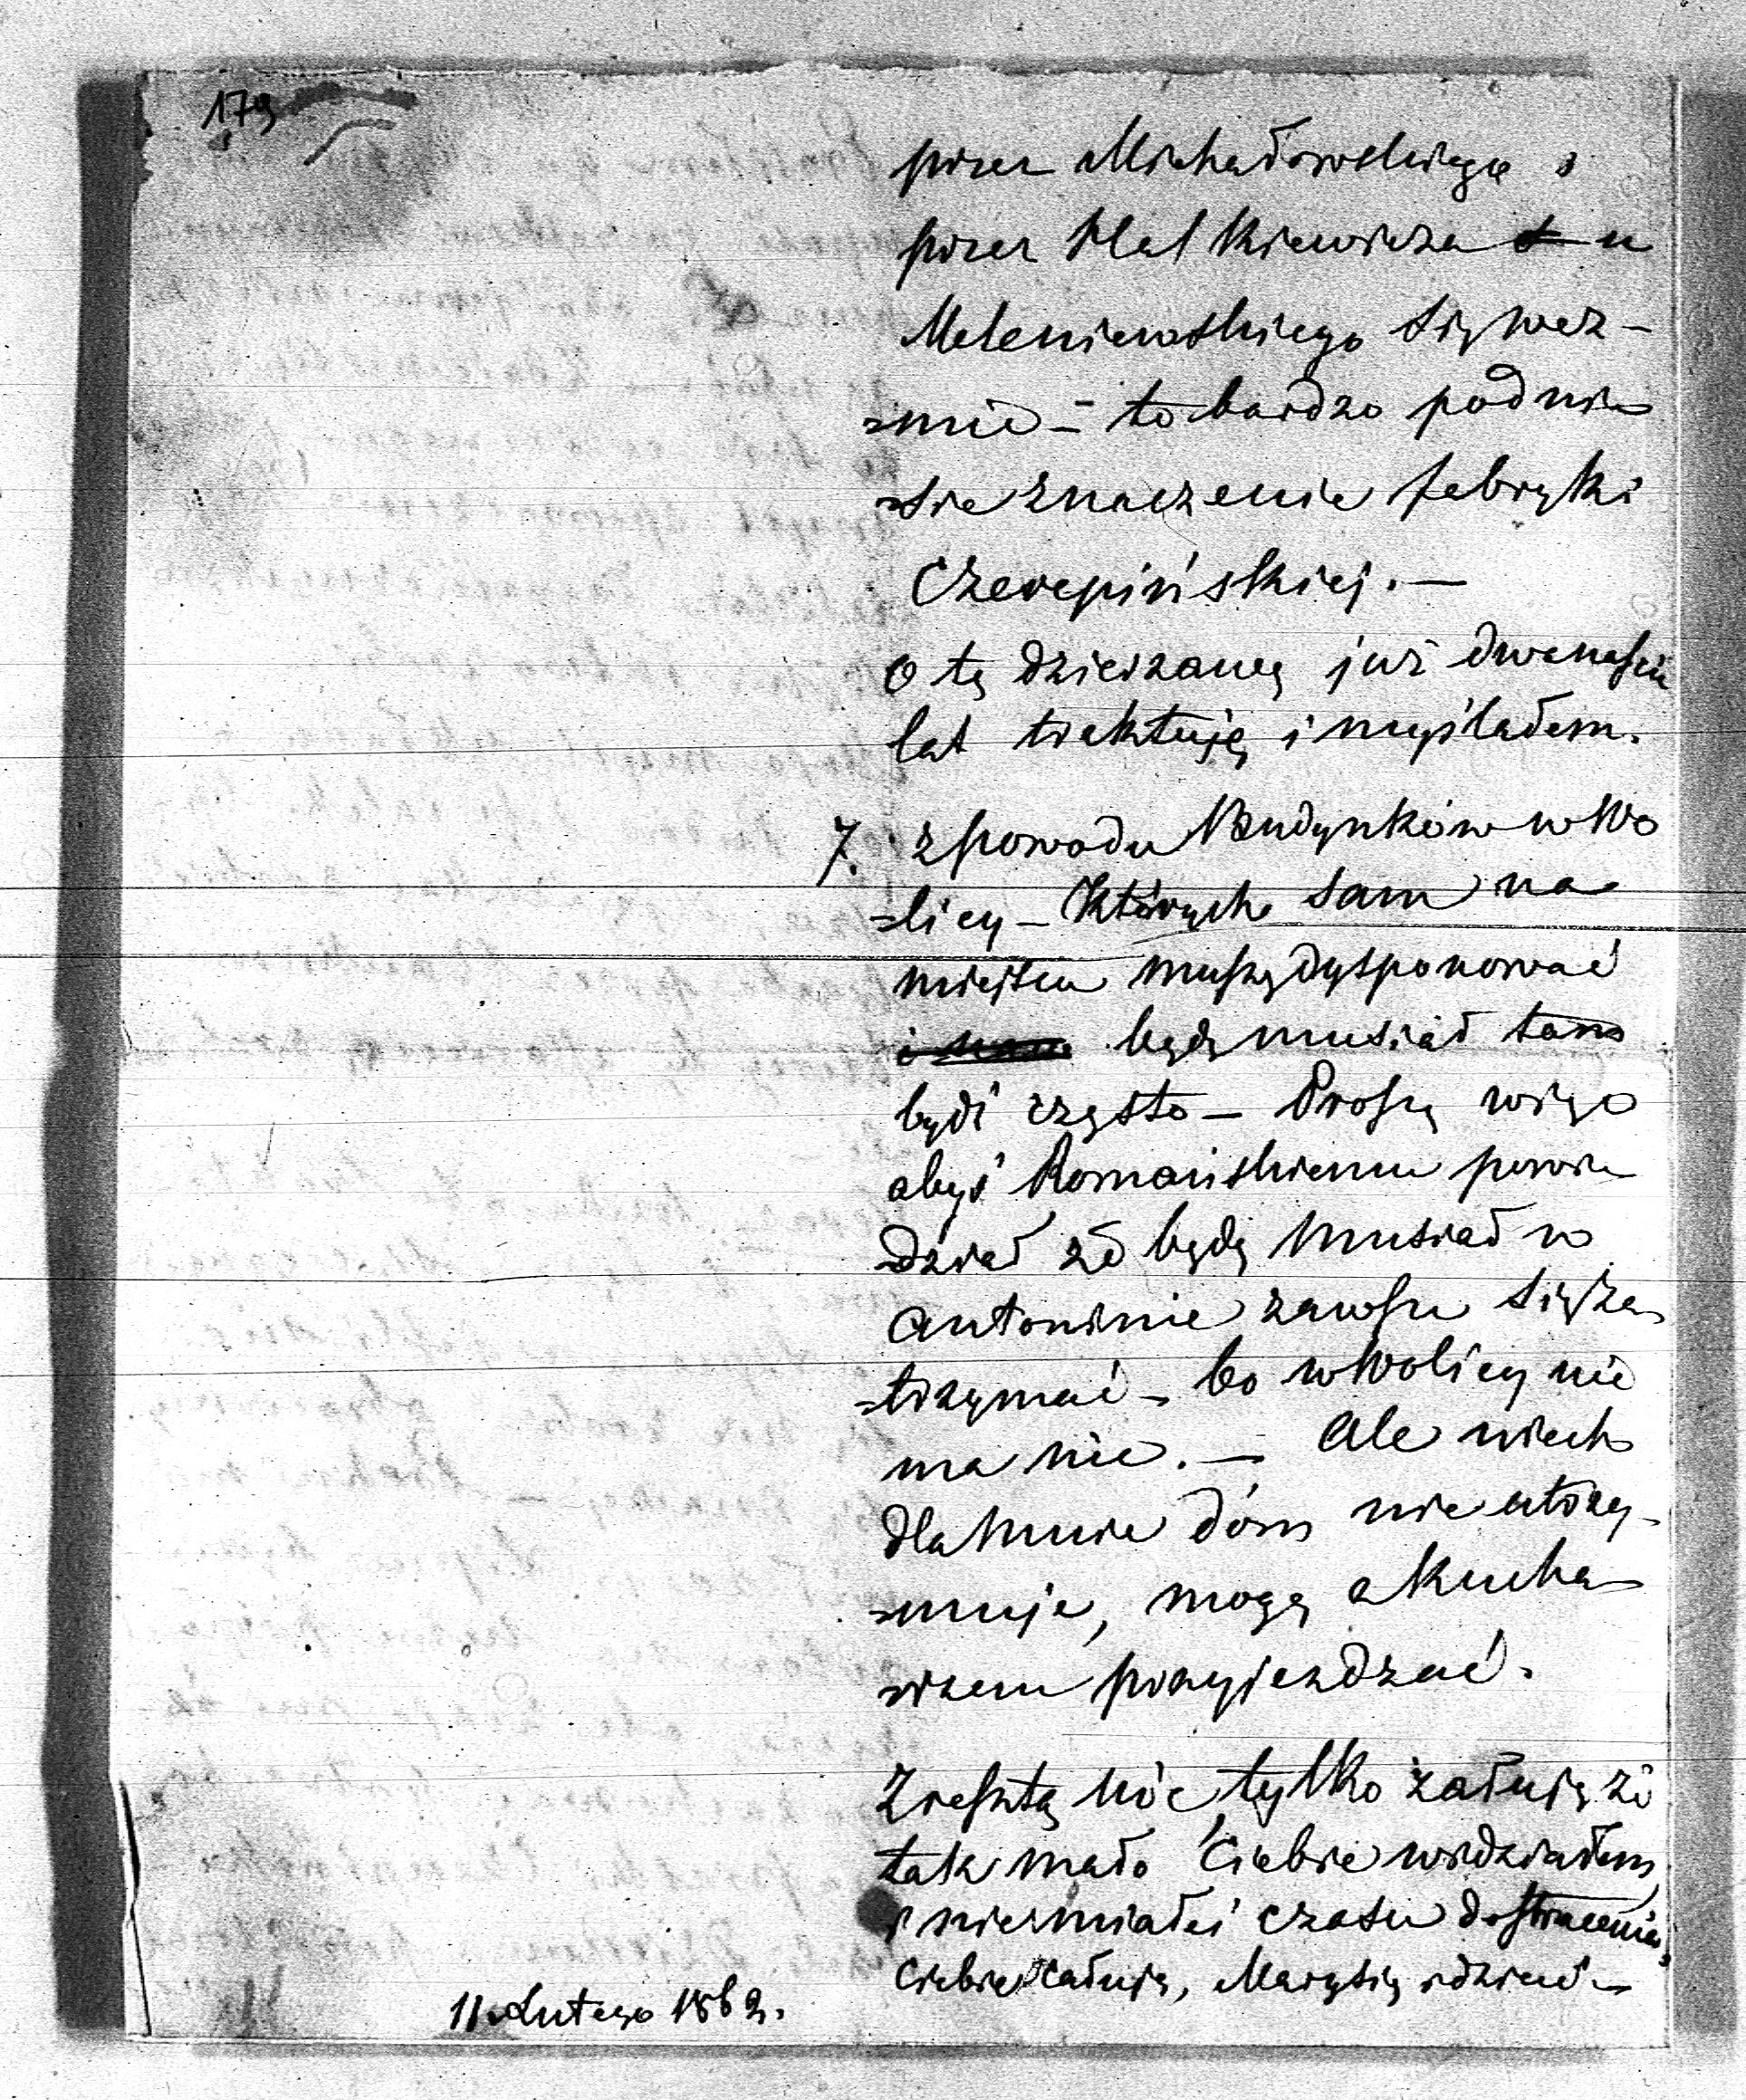 179
przez Michałowskiego i
przez Malkiewicza u
Meleniewskiego się wez-
=mie – to bardzo podnie
=sie znaczenie fabryki
Czerepińskiej. –
O tę dzierzawę już dwanaście
lat traktuję i myślałem.
7. z powodu Budynków w Wo
=licy – których sam na
miejscu muszę dysponować
będę musiał tam
bydź często – Proszę więc
abyś Romańskiemu powie
dział że będę musiał w
Antoninie zawsze się za
=trzymać – bo w Wolicy nie
ma nic. – Ale niech
dla mnie dom nie utrzy-
=muje, mogę z Kucha
=rzem przyjeżdzać.
Zresztą nic, tylko żałuję że
tak mało Ciebie widziałem
i nie miałeś czasu do stracenia,
Ciebie całuję, Marysię i dzieci –
11. Lutego 1862.